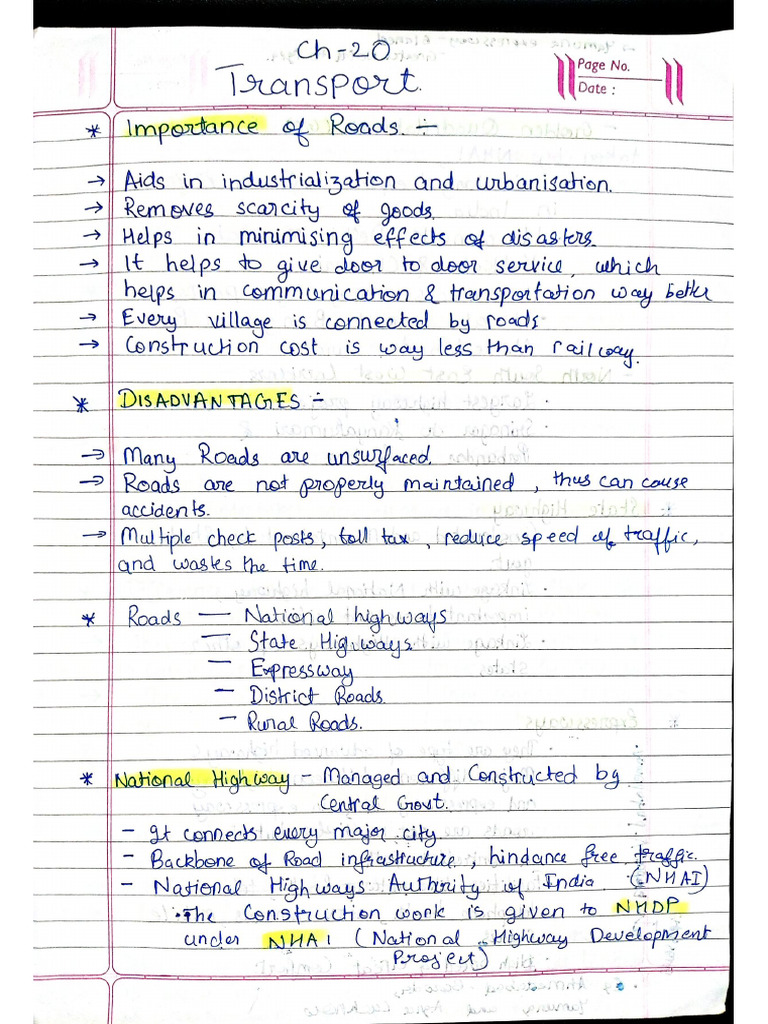 Ch-20
Transport.
Page No.
Date :
* Importance of Roads. :-
→ Aids in industrialization and urbanisation.
→ Removes scarcity of goods.
→ Helps in minimising effects of disasters.
→ It helps to give door to door service, which
helps in communication & transportation way better
→ Every village is connected by roads.
→ Construction cost is way less than railway.
* DISADVANTAGES :-
→ Many Roads are unsurfaced.
→ Roads are not properly maintained, thus can cause
accidents.
→ Multiple check posts, toll tax, reduce speed of traffic,
and wastes the time.
* Roads — National highways
— State Highways.
— Expressway
— District Roads.
— Rural Roads.
* National Highway - Managed and Constructed by
Central Govt.
- It connects every major city.
- Backbone of Road infrastructure, hindance free traffic.
- National Highways Authrity of India (NHAI)
• The Construction work is given to NHDP
under NHAI (National Highway Development
Project)